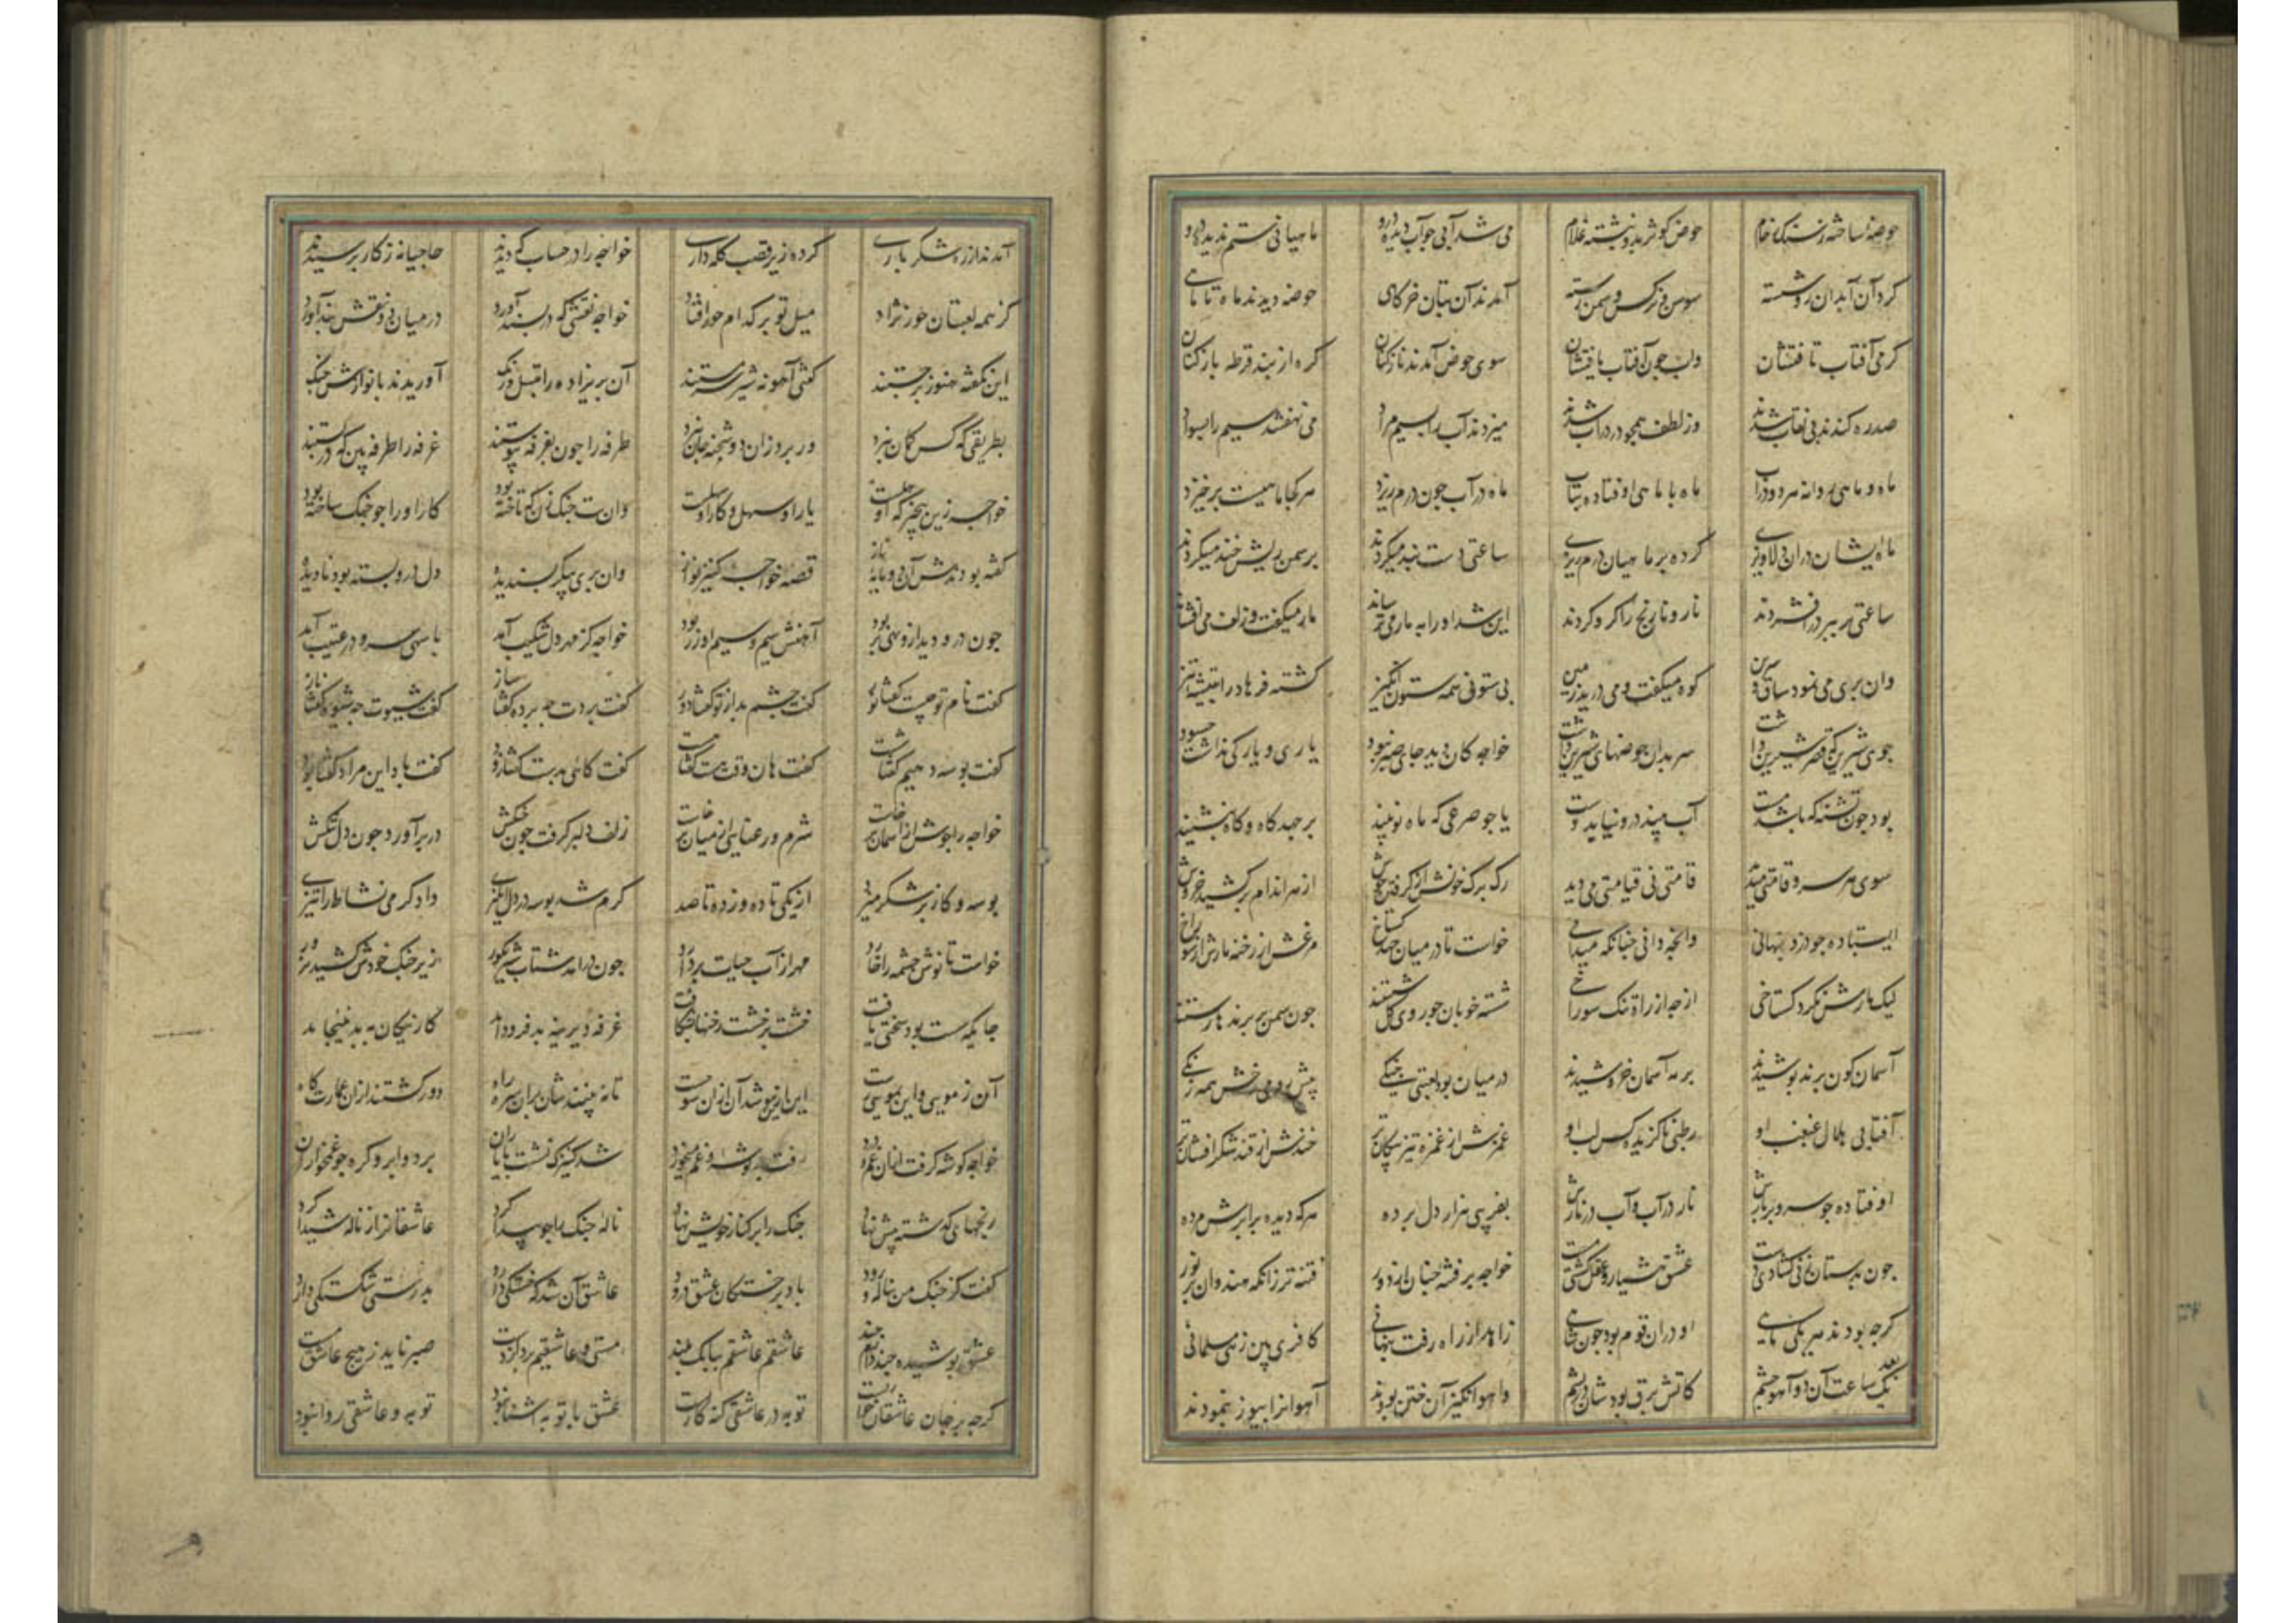 حوضه ساخته ز سنک رخام حوض کوثر بدو نبشته غلام می شد آبی جو آب دیده درو ماهیانی ستم ندیده درو
کرد آن آبدان رو شسته سوسن و نرکس و سمن رسته آمدند آن بتان خرکاهی حوضه دیدند ماه تا ماهی
کرمی آفتاب تافتشان وآب جون آفتاب یافتشان سوی حوض آمدند نازکنان کره از بند قرطه بازکنان
صدره کندند بی نقاب شدند وز لطف همجو در در آب شدند میزدند آب را بسیم مراد می نهفتند سیم را بسواد
ماه و ماهی روانه هر دو در آب ماه با ماهی اوفتاده بتاب ماه در آب جون درم ریزد هر کجا ماهیست برخیزد
ماه ایشان دران دلاویزی کرده بر ماهیان درم ریزی ساعتی دست بند میکردند بر سمن ریش خند میکردند
ساعتی بر ببر در افشردند نار و نارنج را کرو کردند این شد او را به مار می ترساند مار میکفت و زلف می افشاند
وان بری می نمود ساق و سرین کوه میکفت و می درید زمین بی ستونی همه ستون انکیز کشته فرهاد را بتیشه تیز
جوی شیرین که قصر شیرین داشت سر بدان حوضهای شیرین داشت خواجه کان دید جای صبر نبود یاری و یارکی نداشت جسود
بود جون تشنه که باشد مست آب بیند درو نیابد دست یا جو صرعی که ماه نو بیند برجهد کاه و کاه بنشیند
سوی هر سرو قامتی میدید قامتی نی قیامتی می دید رک برک خونش از کرفتن جوش از هر اندام برکشید خروش
ایستاده جو دزد بنهانی وانجه دانی جنانکه میدانی خواست تا در میان جهد کستاخ مرغش از رخنه مارش از سوراخ
لیک مارش نکرد کستاخی ازجه از راه تنک سوراخی شسته خوبان جو روی کل شستند جون سمن بر برند بر رستند
آسمان کون برند بوشیدند بر مه آسمان خروشیدند در میان بود لعبتی جنکی بیش رومی رخش همه زنکی
آفتابی هلال غبغب او رطبی ناکزیده کس لب او غمزش از غمزه تیز پیکان تر خندش از قند شکر افشان تر
اوفتاده جو سرو بر بارش نار در آب و آب در نارش بفریبی هزار دل برده هرکه دیده برابرش مرده
جون بدستان زنی کشادی دست عشق هشیار و عقل کشتی مست خواجه بر فتنه جنان از دور فتنه تر زانکه هندوان بر نور
کرجه بودند هر یکی ماهی او دران قوم بود جون زاهد از راه رفت بنهانی کافری بین زهی مسلمانی
بعد یک ساعت آن دو آهو جشم کاتش برق بودشان در بشم واهو انکیز آن ختن بودند آهوانرا بیوز بنمودند
آمدند از ره شکر باری کرده زیر قصب کله داری خواجه را در حساب که دیدند حاجبانه ز کار برسیدند
کز همه لعبتان حور نژاد میل تو بر کدام حور افتاد خواجه نقشی که در بسند آورد در میان دو نقش بند آورد
این نکفته هنوز برجستند کفتی آهو نه شیر سرمستند آن بریزاده را بتنبل و رنک آوریدند با نوازش جنک
بطریقی که کس کمان نبرد ور برد زان دو شحنه جان نبرد طرفه را جون بغرفه بیوستند غرفه را طرفه بین که در بستند
خواجه زین بیخبر که او جلست یا راو سهل و کار او سهلست وان بت جنک زن که تاخته بود کار او را جو جنک ساخته بود
کفته بودندش آن دو مایه ناز قصه خواجه کنیز نواز وان بری بیکر بسندیده دل درو بسته بود نادیده
جون درو دید ازو بهی تر بود آهنش سیم و سیم او زر بود خواجه کز مهر دل شکیب آمد با سهی سرو در عتیب آمد
کفت نام تو جیست کفتا نور کفت جشم بد از تو کفتا دور کفت بردت جه برده کفتا ساز کفت شیوت جه شیوه کفتا ناز
کفت بوسه دهیم کفتا شست کفت هان وقت هست کفتا هست کفت کائی بدست کفتا زود کفت باد این مراد کفتا بود
خواجه را جوش از استخوان برخاست شرم و رعنایی از میان برخاست زلف دلبر کرفت جون جنکش در بر آورد جون دل تنکش
بوسه و کاز بر شکر میزد از یکی تا ده و ز ده تا صد کرم شد بوسه در دل انکیزی داد کرمی نشاط را تیزی
خواست تا نوش جشمه را خارد مهر از آب حیات بردارد جون درآمد شتاب شیر بکور زیر جنک خودش کشید بزور
جایکه سست بود سختی یافت خشت بر خشت رخنها بشکافت غرفه دیرینه بد فرود آمد کار نیکان به بد نینجامد
آن ز مویی و این بمویی رست این ازین سو شد آن ازان سو جست تا نه بینندشان بران سر راه دور کشتند ازان عمارت کاه
خواجه کوشه کرفت از آن غم و درد رفت در کوشه و غم میخورد شد کنیزک نشست با یاران بر دو ابرو کره جو غمخواران
رنجهای کذشته بیش نهاد جنک را بر کنار خویش نهاد ناله جنک را جو بیدا کرد عاشقانرا ز ناله شیدا کرد
کفت کز جنک من بناله رود باد بر خستکان عشق درود عاشق آن شد که خستکی دارد بدرستی شکستکی دارد
عشق بوشیده جند دارم جند عاشقم عاشقم ببانک بلند مستی و عاشقیم برد از دست صبر ناید ز هیج عاشق مست
کرجه بر جان عاشقان خواریست توبه در عاشقی کنه کاریست عشق با توبه آشنا نبود توبه و عاشقی روا نبود